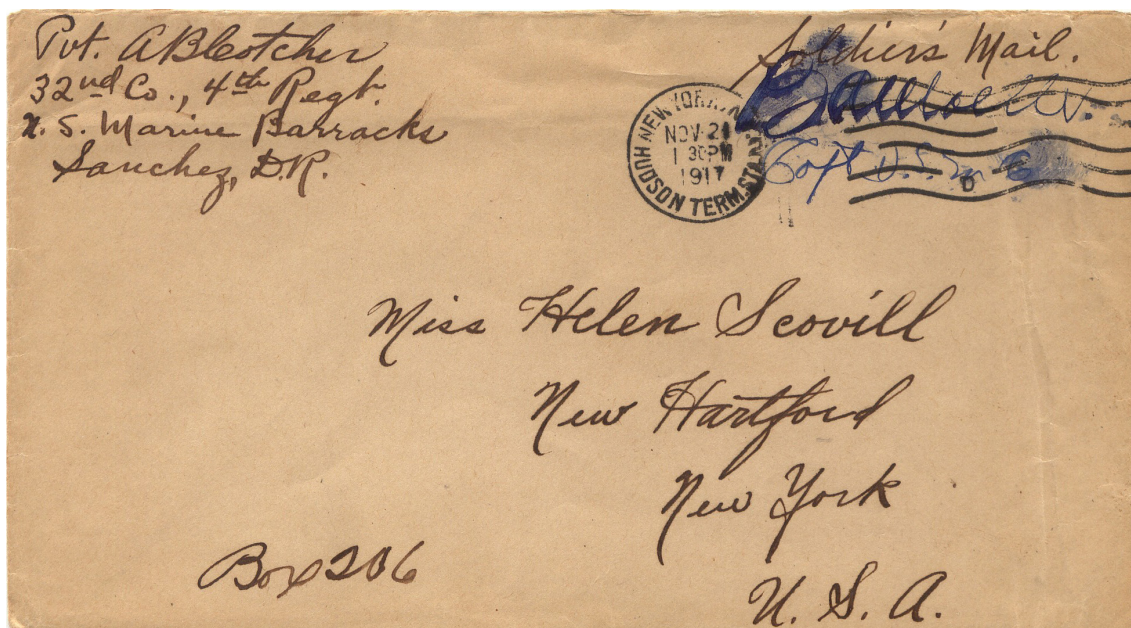 Pvt. A Bleotcher
32nd Co., 4th Regt.
U. S. Marine Barracks
Sanchez, D.R.
Soldier's Mail.
Capt U.S.M.C
NEW YORK, N.Y.
NOV 21
1 30 PM
1917
HUDSON TERM. STA.
Miss Helen Scovill
New Hartford
New York
U. S. A.
Box 206